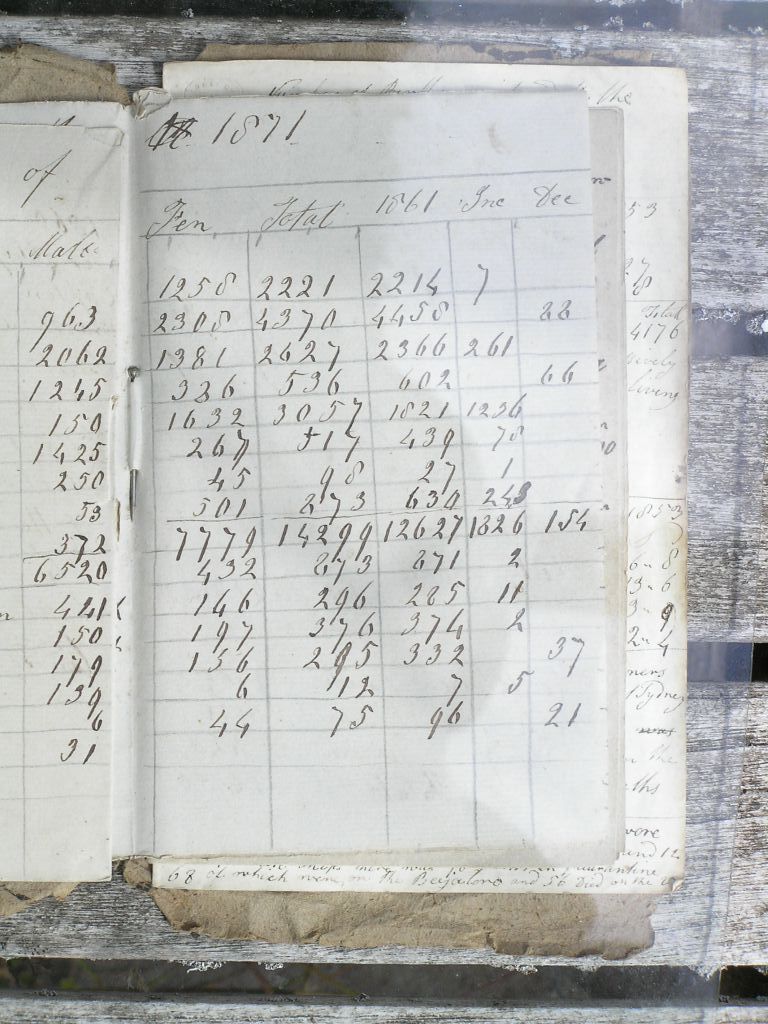 of
Male
963
2062
1245
150
1425
250
53
372
6520
421
150
179
139
6
31
1871
Fem Total 1861 Inc Dec
1258 2221 2214 7
2308 4370 4458 88
1381 2627 2366 261
386 536 602 66
1632 3057 1821 1236
267 517 439 78
45 98 27 1
501 873 630 243
7779 14299 12627 1826 154
432 873 871 2
146 296 285 11
197 376 374 2
156 295 332 37
6 12 7 5
44 75 96 21
the
53
Total
4176
living
1853
6 " 8
13 " 6
3 " 9
2 " 4
Sydney
was
the
ths
were
and 12
68 of which were on the Beejapore and 56 died on the